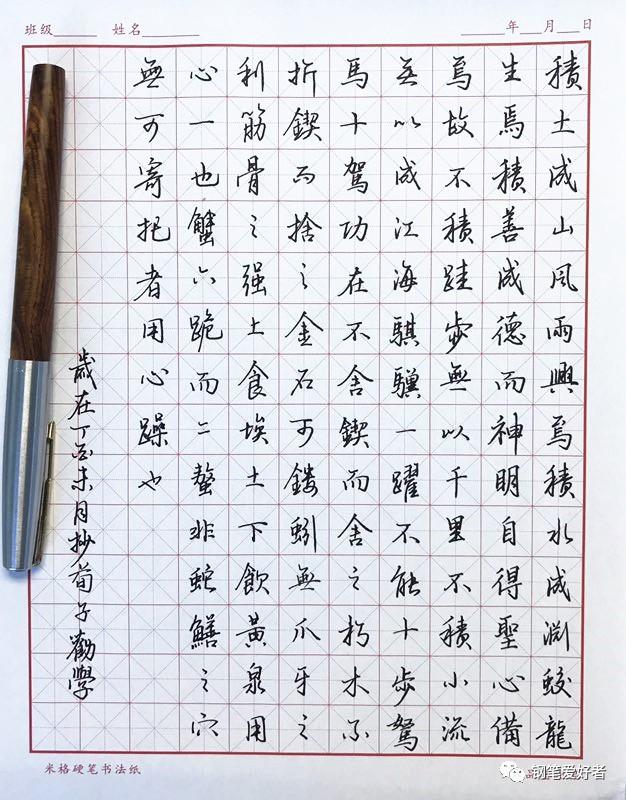 班级 姓名 年 月 日
積土成山風雨興焉積水成淵蛟龍
生焉積善成德而神明自得聖心備
焉故不積跬步無以千里不積小流
無以成江海騏驥一躍不能十步駑
馬十駕功在不舍鍥而舍之朽木不
折鍥而捨之金石可鏤蚓無爪牙之
利筋骨之强上食埃土下飲黃泉用
心一也蟹六跪而二螯非蛇鱔之穴
無可寄托者用心躁也
歲在丁酉未月抄荀子勸學
米格硬笔书法纸
钢笔爱好者